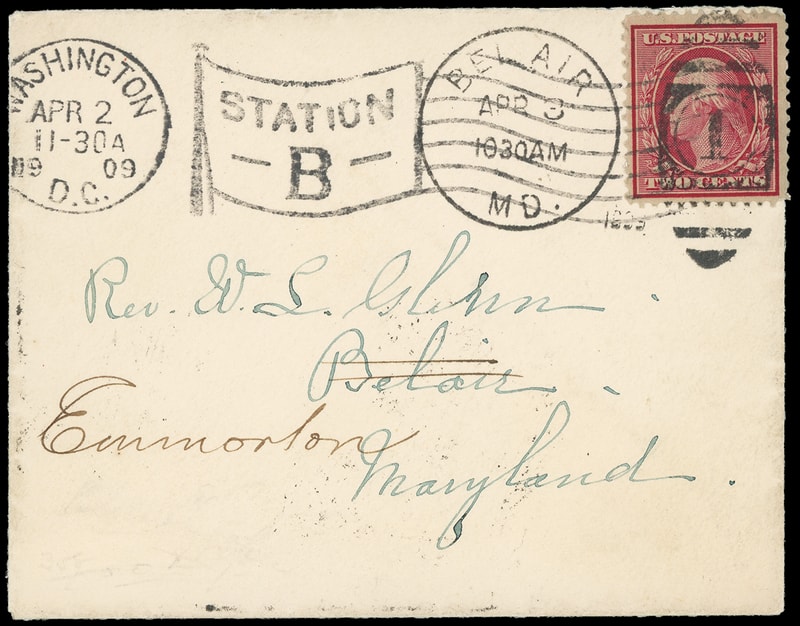 WASHINGTON
APR 2
11-30A
1909
D.C.
STATION
B
BEL AIR
APR 3
1030AM
MD.
U.S. POSTAGE
1
TWO CENTS
Rev. W. L. Glenn
Belair
Emmorton
Maryland.